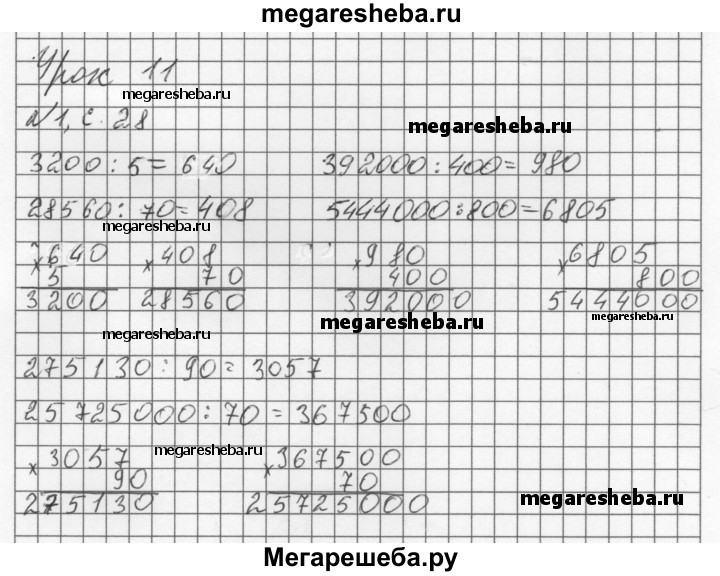 megaresheba.ru
Урок 11
megaresheba.ru
№1, с. 28
megaresheba.ru
3200 : 5 = 640 392000 : 400 = 980
28560 : 70 = 408 5444000 : 800 = 6805
megaresheba.ru
× 640 × 408 × 980 × 6805
5 70 400 800
3200 28560 392000 5444000
megaresheba.ru megaresheba.ru megaresheba.ru
275130 : 90 = 3057
25725000 : 70 = 367500
megaresheba.ru
× 3057 × 367500
90 70
275130 25725000
megaresheba.ru
Мегарешеба.ру